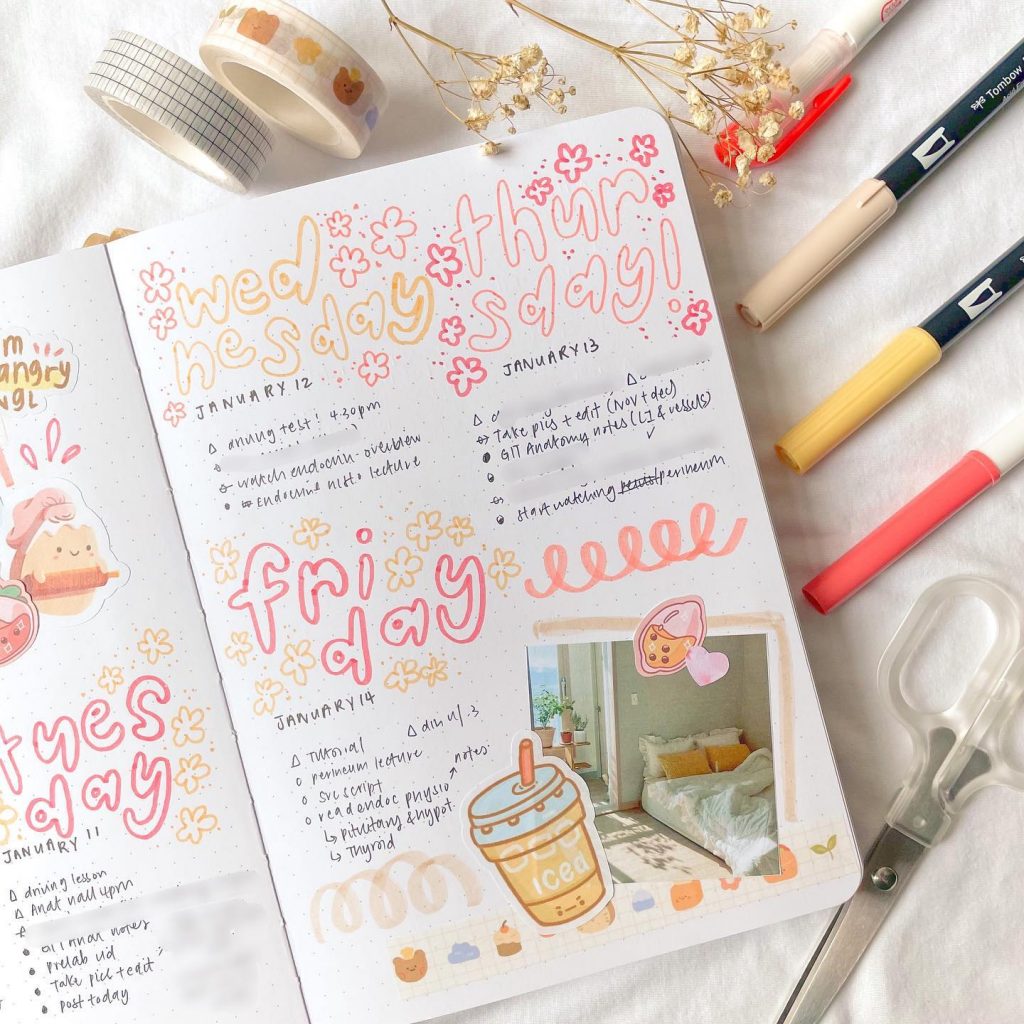 angry
tues
day
JANUARY 11
driving lesson
4pm
notes
prelab
Take pics + edit
post today
wed
nesday
JANUARY 12
driving test! 4:30pm
watch endocrin overview
Endocrine histo lecture
thur
sday!
JANUARY 13
Take pics + edit (Nov + dec)
GIT Anatomy notes (LI & vessels)
start watching perineum
fri
day
JANUARY 14
TUTORIAL
perineum lecture
src script
read endoc physio
notes:
↳ pituitary & hypot.
↳ Thyroid
iced
Tombow